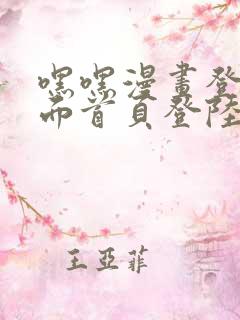 嘿嘿漫畫登
而首頁登陸
王亞菲